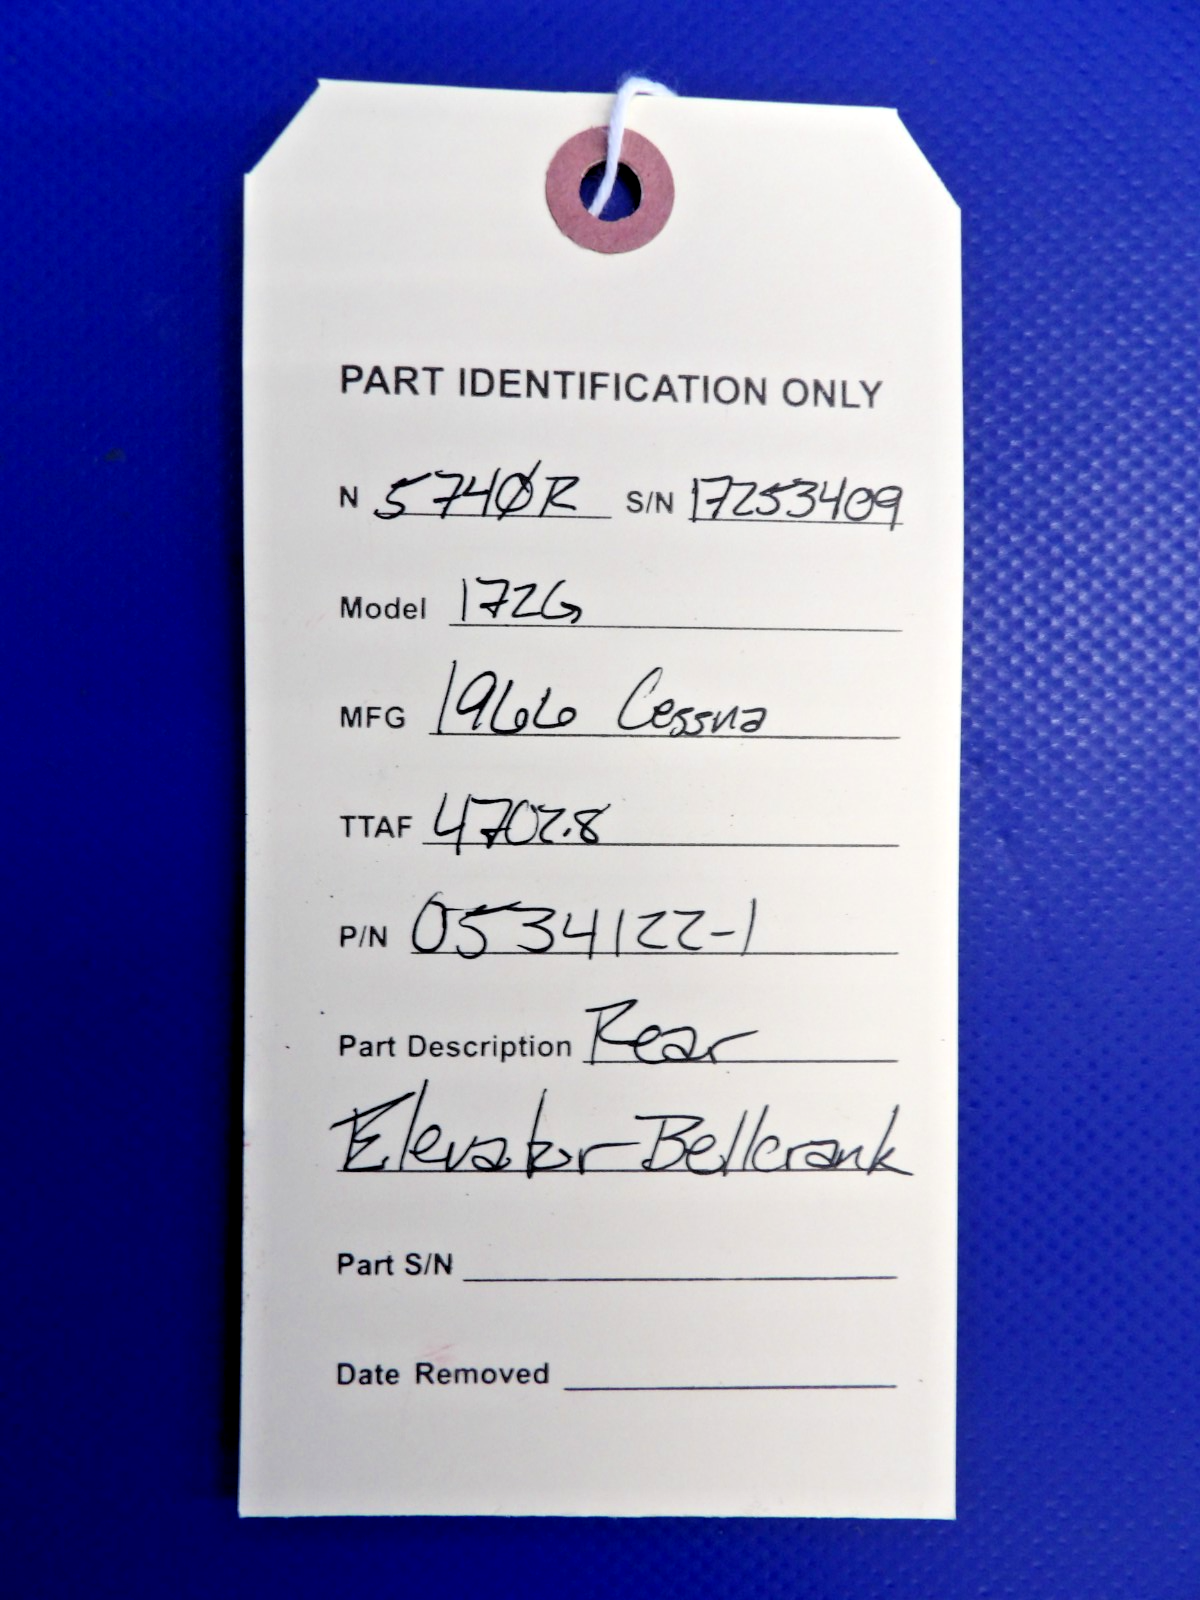 PART IDENTIFICATION ONLY
N 5740R S/N 17253409
Model 172G
MFG 1966 Cessna
TTAF 4702.8
P/N 0534122-1
Part Description Rear
Elevator Bellcrank
Part S/N
Date Removed